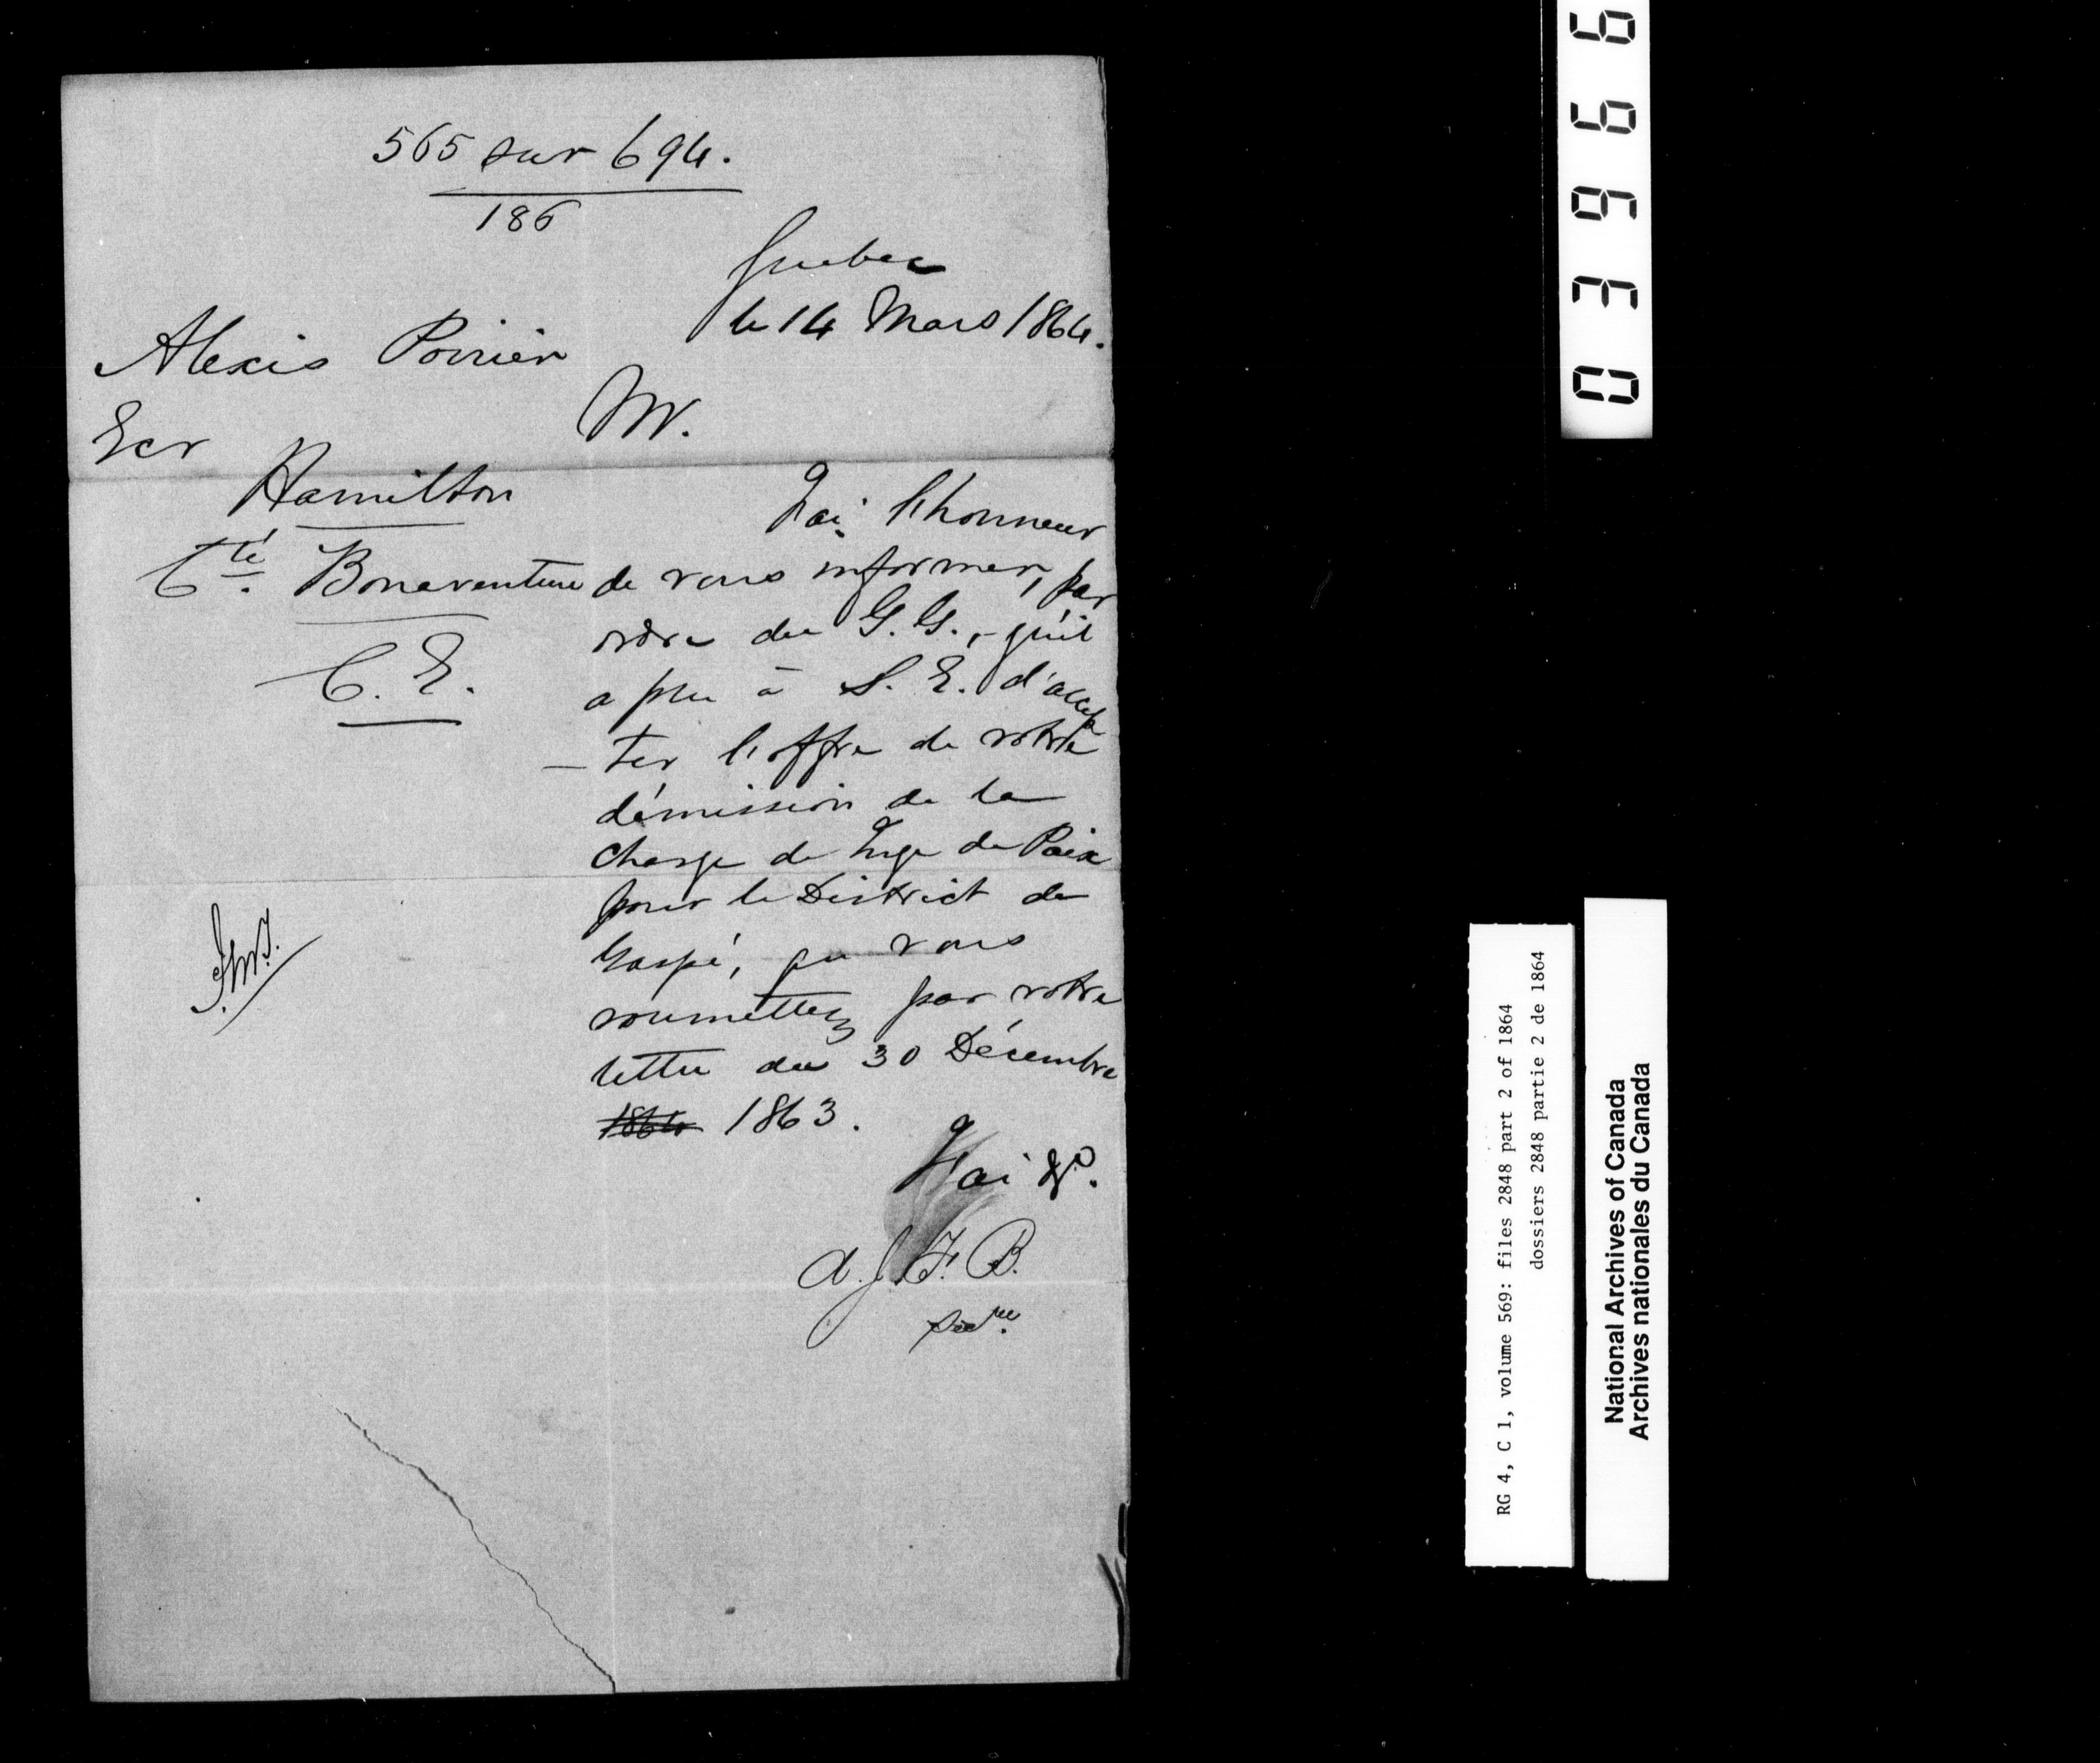 565 sur 694.
186
Quebec
le 14 Mars 1864.
Alexis Poirier
Ecr
Hamilton
Cté. Bonaventure
C. E.
M.
J'ai l'honneur
de vous informer, par
ordre du G. G., qu'il
a plu à S. E. d'accep
-ter l'offre de votre
démission de la
charge de Juge de Paix
pour le District de
Gaspé, que vous
soumettez par votre
lettre du 30 Décembre
1864 1863.
J'ai &c.
A. J. F. B.
03966
RG 4, C 1, volume 569: files 2848 part 2 of 1864
dossiers 2848 partie 2 de 1864
National Archives of Canada
Archives nationales du Canada